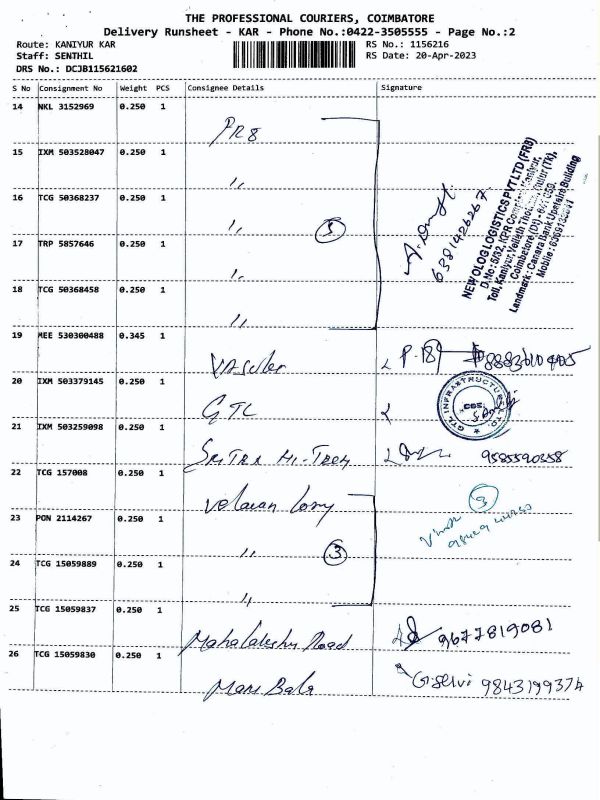 THE PROFESSIONAL COURIERS, COIMBATORE
Delivery Runsheet - KAR - Phone No.:0422-3505555 - Page No.:2
Route: KANIYUR KAR
RS No.: 1156216
Staff: SENTHIL
RS Date: 20-Apr-2023
DRS No.: DCJB115621602
S No Consignment No Weight PCS Consignee Details Signature
14 NKL 3152969 0.250 1
FR8
15 IXM 503528047 0.250 1
"
16 TCG 50368237 0.250 1
" 5
17 TRP 5857646 0.250 1
"
18 TCG 50368458 0.250 1
"
6381426267
NEWOLOG LOGISTICS PVT LTD (FR8)
D.No: 5/32, KPR
Toll, Kaniyur,
Coimbatore (Dt) -
Landmark: Canara Bank Upstairs Building
Mobile:
19 MEE 530300488 0.345 1
20 IXM 503379145 0.250 1
GTL
GTL INFRASTRUCTURE LTD.
21 IXM 503259098 0.250 1
Hi-Tech 9585590358
22 TCG 157008 0.250 1
Velavan Lorry
23 PON 2114267 0.250 1
" 3
3
24 TCG 15059889 0.250 1
"
25 TCG 15059837 0.250 1
Road 9677819081
26 TCG 15059830 0.250 1
G. Selvi 9843199374